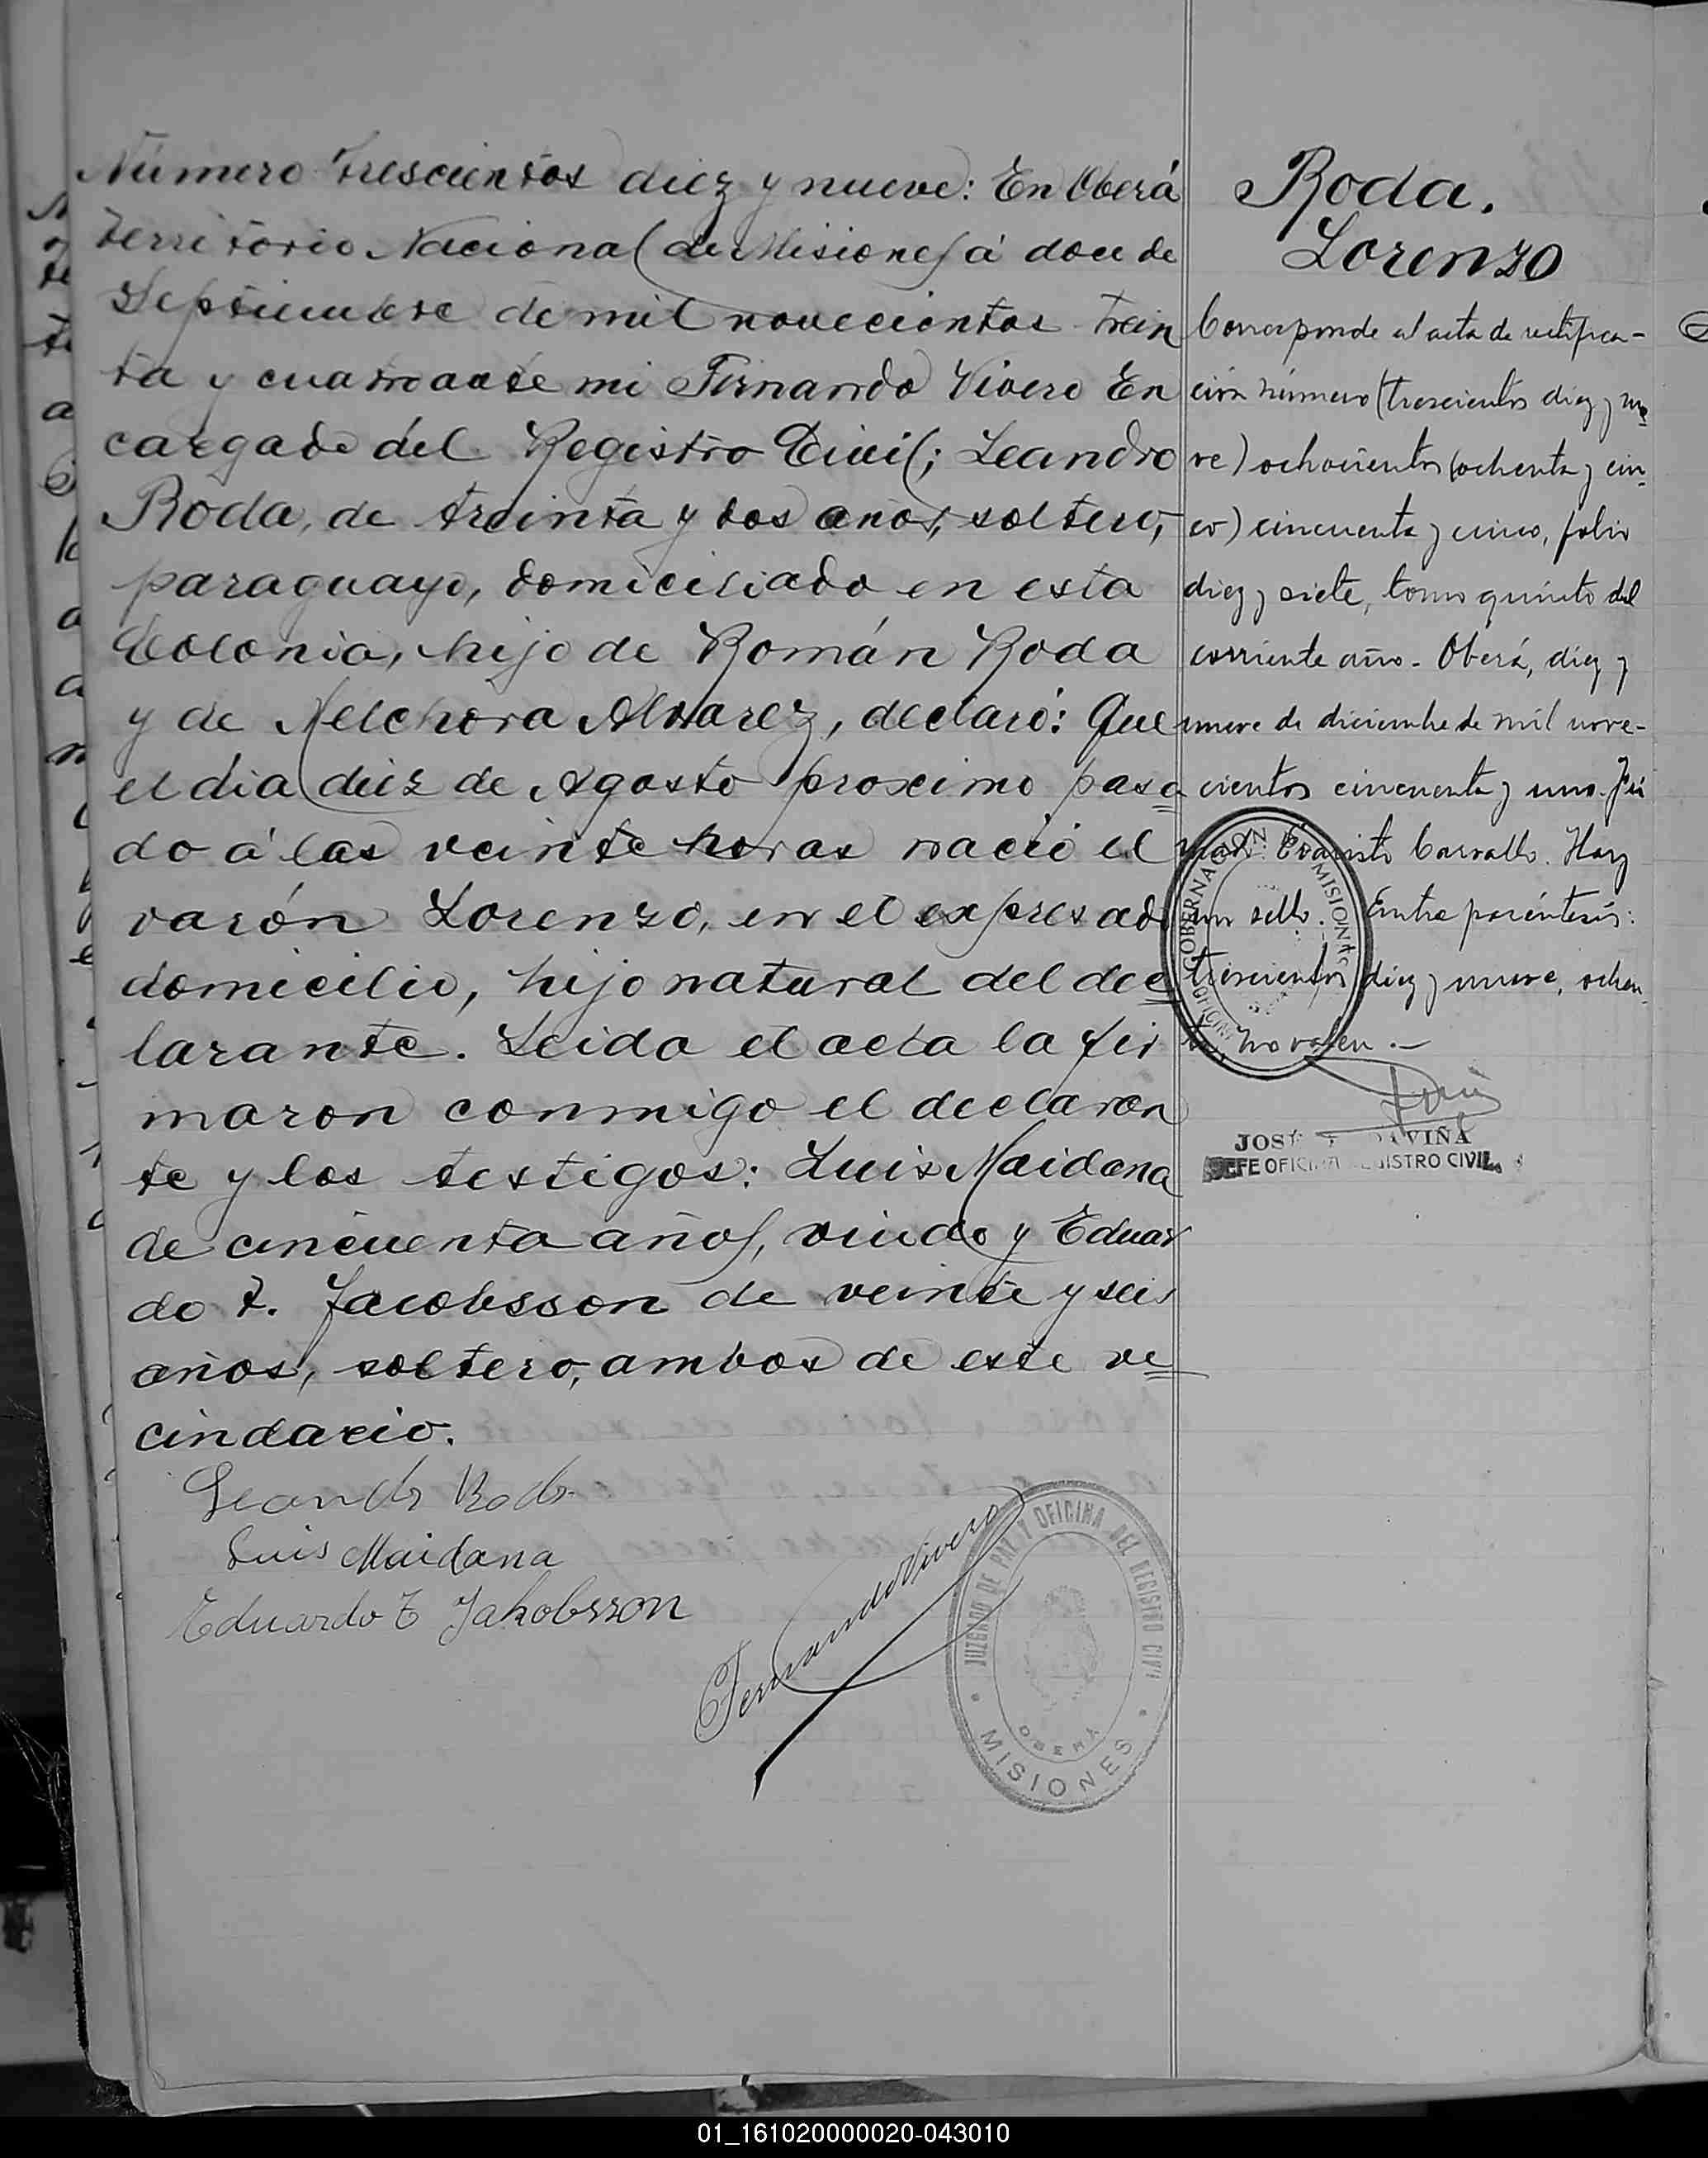 Número trescientos diez y nueve: En Oberá
territorio Nacional de Misiones á doce de
Septiembre de mil novecientos trein
ta y cuatro ante mi Fernando Vivero En
cargado del Registro Civil; Leandro
Roda, de treinta y dos años, soltero,
paraguayo, domiciliado en esta
Colonia, hijo de Román Roda
y de Melchora Alvarez, declaró: Que
el dia diez de Agosto proximo pasa
do á las veinte horas nació el
varón Lorenzo, en el expresado
domicilio, hijo natural del dec
larante. Leida el acta la fir
maron conmigo el declaran
te y los testigos: Luis Maidana
de cincuenta años, viudo y Eduar
do T. Jacobsson de veinte y seis
años, soltero, ambos de este ve
cindario.
Leandro Roda
Luis Maidana
Eduardo T Jakobsson
Fernando Vivero
JUZGADO DE PAZ Y OFICINA DEL REGISTRO CIVIL
OBERÁ
MISIONES
Roda.
Lorenzo
Corresponde al acta de rectifica-
ción número (trescientos diez y nue
ve) ochocientos (ochenta y cin
co) cincuenta y cinco, folio
diez y siete, tomo quinto del
corriente año. Oberá, diez y
nueve de diciembre de mil nove-
cientos cincuenta y uno. Fir
mado: Evaristo Carvallo. Hay
un sello. Entre paréntesis:
trescientos diez y nueve, ochen
ta, no valen.-
GOBERNACION MISIONES
JOSÉ DAVIÑA
JEFE OFICINA REGISTRO CIVIL
01_161020000020-043010